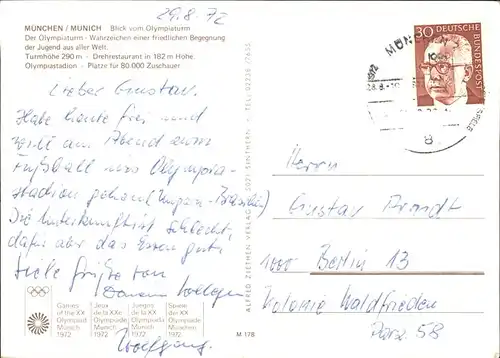 29.8.72
MÜNCHEN / MUNICH Blick vom Olympiaturm
Der Olympiaturm - Wahrzeichen einer friedlichen Begegnung
der Jugend aus aller Welt.
Turmhöhe 290 m - Drehrestaurant in 182 m Höhe
Olympiastadion - Plätze für 80 000 Zuschauer
Lieber Gustav.
Habe heute frei und
will am Abend zum
Fußball ins Olympia-
stadion gehen (Ungarn-Brasilien)
Die Unterkunft ist schlecht,
dafür aber das Essen gut.
Viele Grüße von
Wolfgang
Games of the XX Olympiad Munich 1972
Jeux de la XXe Olympiade Munich 1972
Juegos de la XX Olimpiada Munich 1972
Spiele der XX Olympiade München 1972
M 178
ALFRED ZIETHEN VERLAG 5021 SINTHERN
30 DEUTSCHE BUNDESPOST
MÜNCHEN
8
Herrn
Gustav Brandt
1000 Berlin 13
Kolonie Waldfrieden
Parz. 58